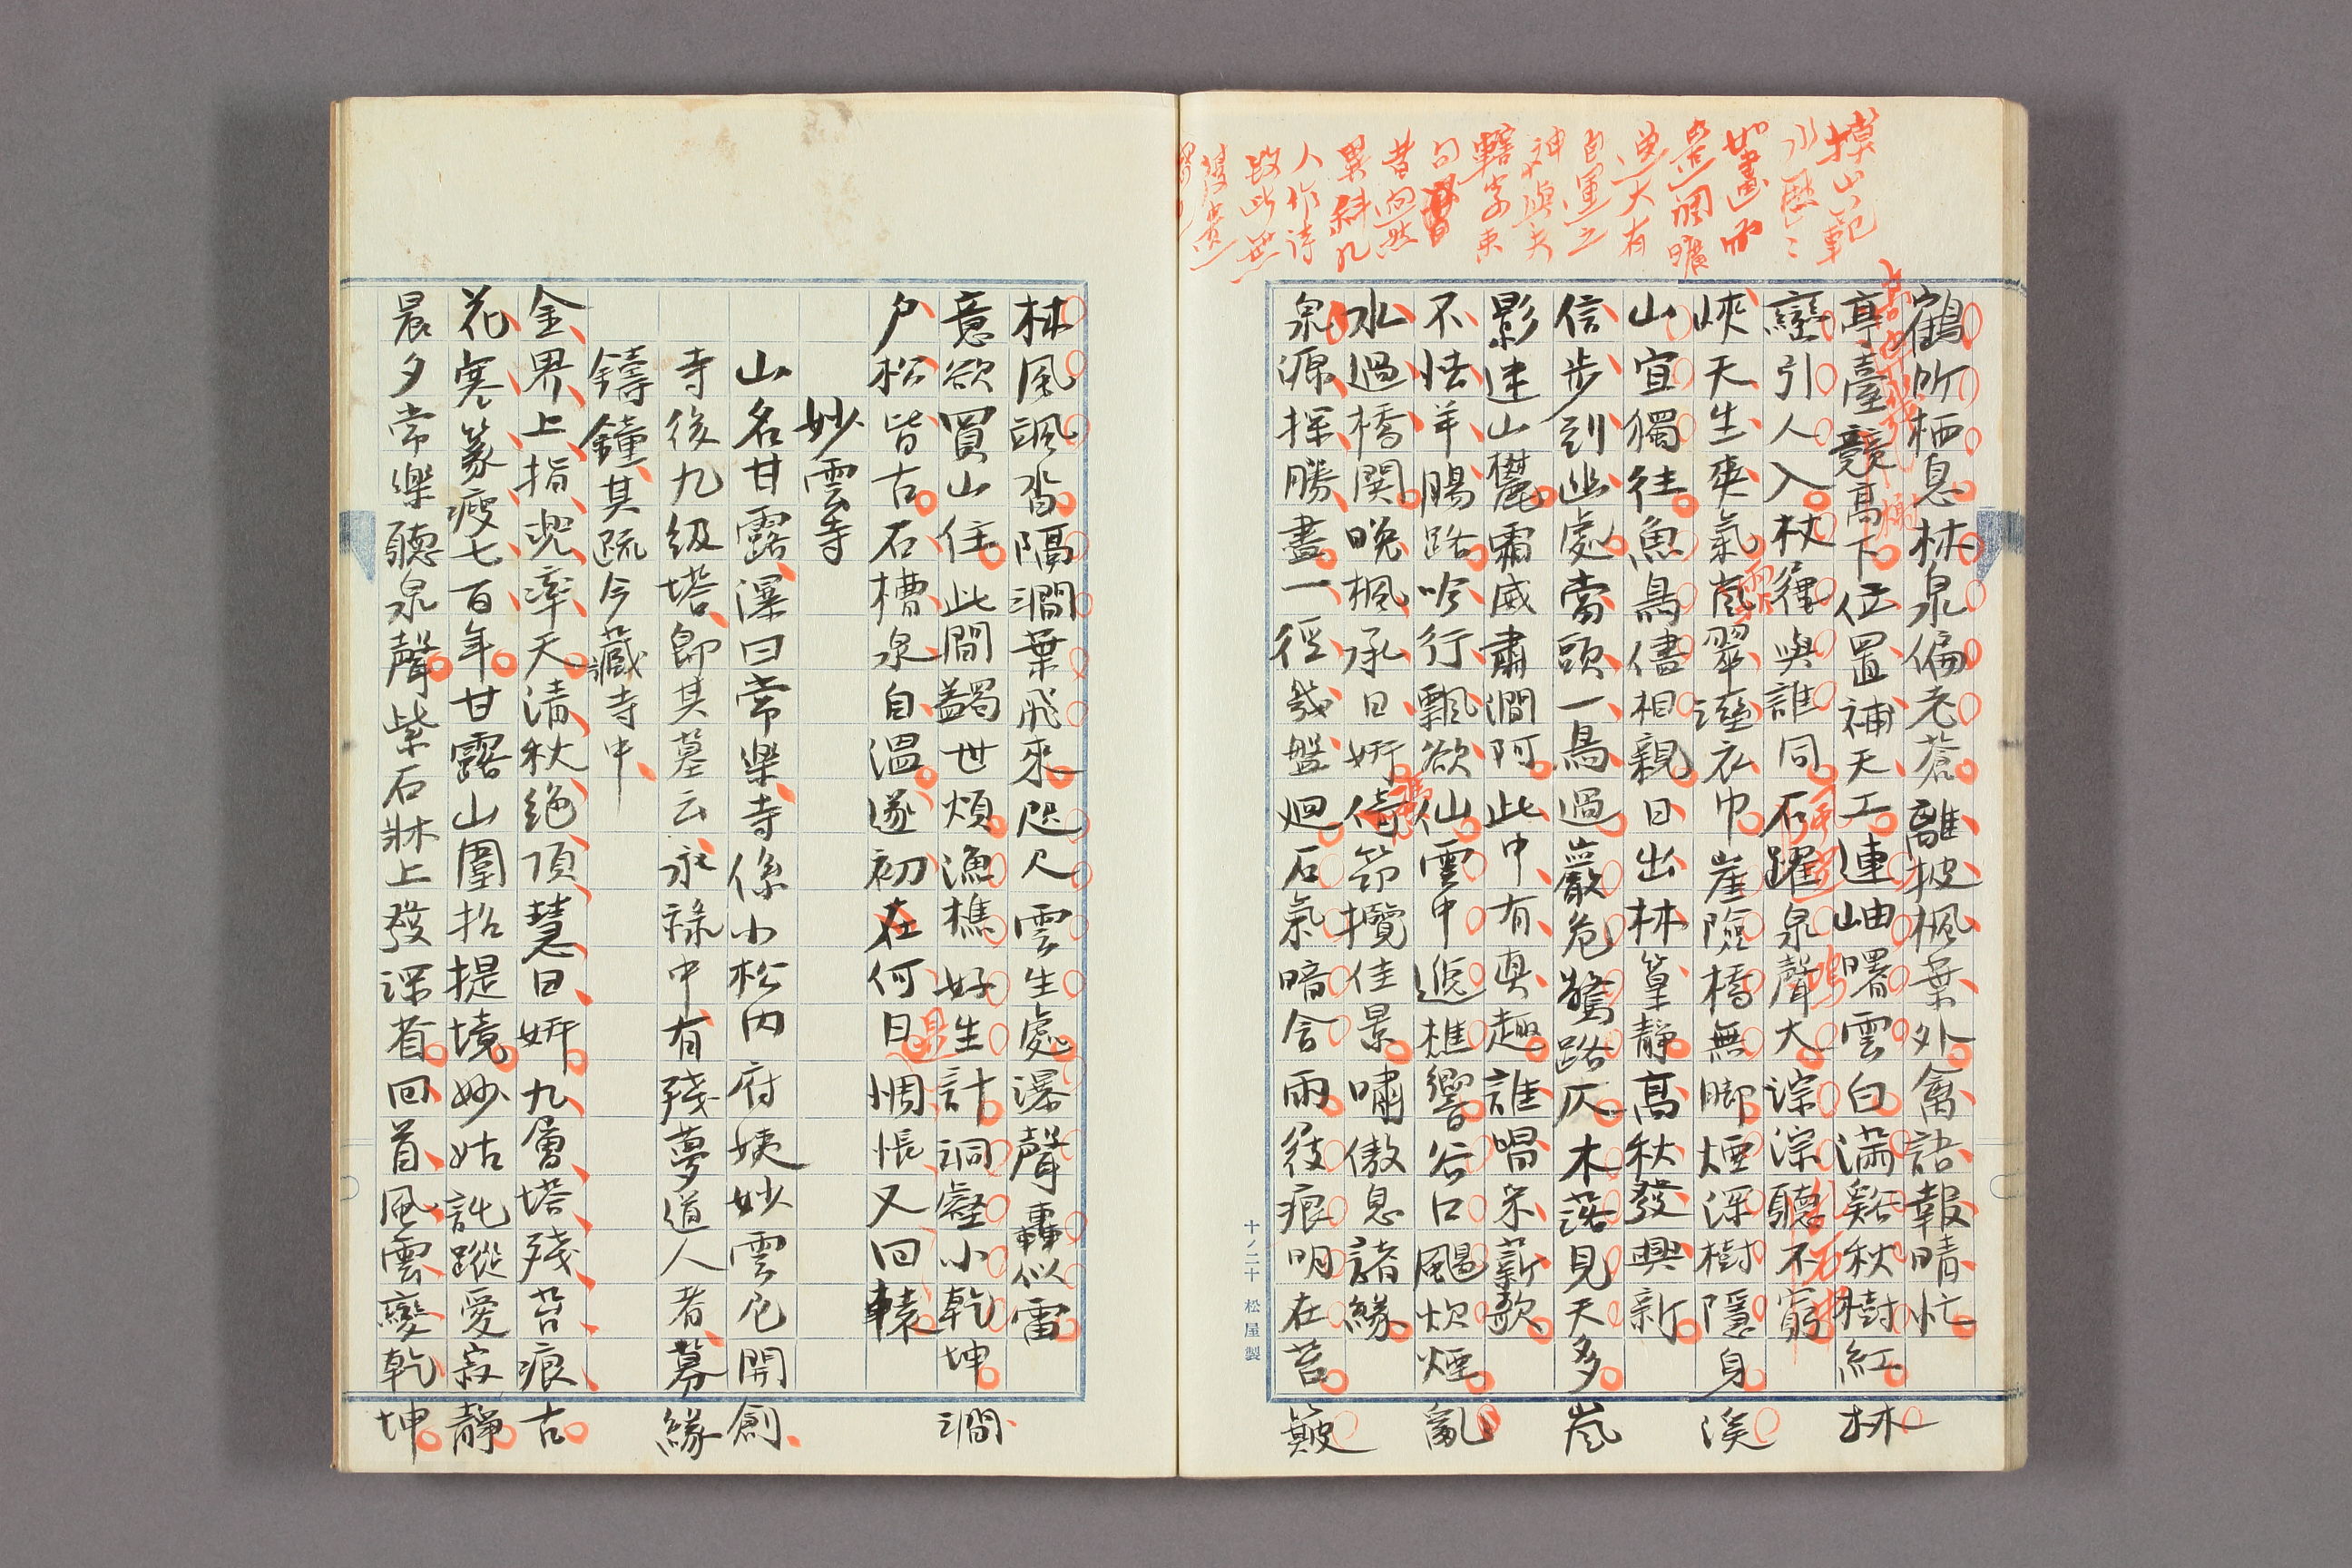 摸山範
水歷〻
如畫而
是洞曠
逸大有
自運之
神與夫
轄字束
句
昔迥然
異斜凡
人作詩
段此無
鶴所栖息林泉偏老蒼離披楓葉外禽語報晴忙
亭臺競高下位置補天工連岫曙雲白滿谿秋樹紅林
巒引人入杖䅜與誰同石躍泉聲大淙淙聽不窮
峽天生爽氣嵐翠溼衣巾崖險橋無脚煙深樹隱身溪
山宜獨往魚鳥儘相親日出林篁靜高秋發興新
信步到幽處當頭一鳥過巖危驚路仄木落見天多嵐
影迷山麓霜威肅澗阿此中有真趣誰唱采薪歌
不怯羊腸路吟行飄欲仙雲中遞樵響谷口颺炊煙亂
水過橋闋晚楓承日妍倚筇攬佳景嘯傲息諸緣
泉源探勝盡一徑幾盤迴石氣暗含雨屐痕明在苔簸
十ノ二十 松屋製
林風颯沓隔澗葉飛來咫尺雲生處瀑聲轟似雷
意欲買山住此間蠲世煩漁樵好生計洞壑小乾坤澗
戶松皆古石槽泉自溫遂初在何日惆悵又回轅
妙雲寺
山名甘露瀑曰常樂寺係小松内府姨妙雲尼開創
寺後九級塔即其墓云永祿中有殘夢道人者募緣
鑄鐘其疏今藏寺中
金界上指兜率天清秋絶頂慧日妍九層塔殘苔痕古
花寒篆瘦七百年甘露山圍招提境妙姑託蹤愛寂靜
晨夕常樂聽泉聲紫石牀上發深省回首風雲變乾坤